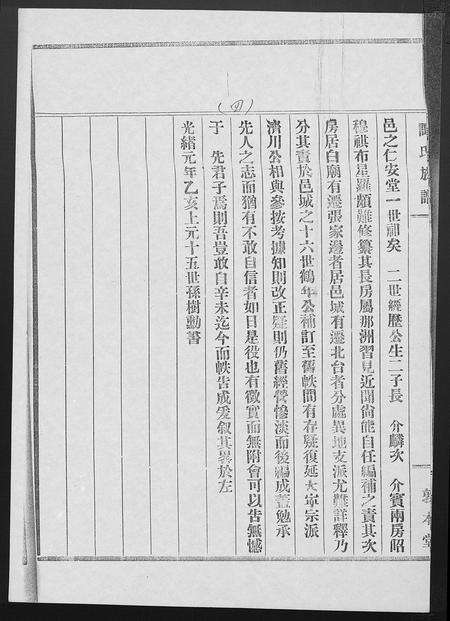 氏族譜
邑之仁安堂一世祖矣　二世經歷公生二子長　介麟次　介賓兩房昭
穆祺布星羅頗難修纂其長房屬那洲習見近聞尙能自任編補之責其次
房居白廟有遷張家邊者居邑城有遷北台者分處異地支派尤難詳釋乃
分其責於邑城之十六世鶴年公補訂至舊帙間有存疑復延大寧宗派
濟川公相與參按考據知則改正疑則仍舊經營慘淡而後編成蓋勉承
先人之志而猶有不敢自信者如曰是役也有徵實而無附會可以告無憾
于　先君子焉則吾豈敢自辛未迄今而帙告成爰叙其畧於左
光緖元年乙亥上元十五世孫樹勳書
(四)
敦本堂